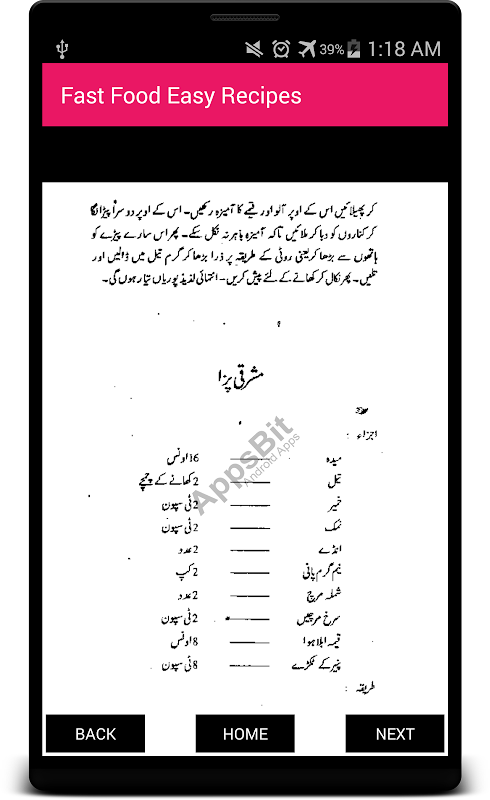 39% 1:18 AM
Fast Food Easy Recipes
کر پھیلائیں اس کے اوپر آلو اور قیمے کا آمیزہ رکھیں۔ اس کے اوپر دوسرا پیڑا لگا
کر کناروں کو دبا کر ملائیں تاکہ آمیزہ باہر نہ نکل سکے۔ پھر اس سارے پیڑے کو
ہاتھوں سے بڑھا کر یعنی روٹی کے طریقہ پر ذرا بڑھا کر گرم تیل میں ڈالیں اور
تلیں۔ پھر نکال کر کھانے کے لئے پیش کریں۔ انتہائی لذیذ پوریاں تیار ہوں گی۔
مشرقی پزا
اجزاء :
میدہ ——— 16 اونس
تیل ——— 2 کھانے کے چمچے
خمیر ——— 2 ٹی سپون
نمک ——— 2 ٹی سپون
انڈے ——— 2 عدد
نیم گرم پانی ——— 2 کپ
شملہ مرچ ——— 2 عدد
سرخ مرچیں ——— 2 ٹی سپون
قیمہ ابلا ہوا ——— 8 اونس
پنیر کے ٹکڑے ——— 8 ٹی سپون
طریقہ :
AppsBit
Android Apps
BACK HOME NEXT